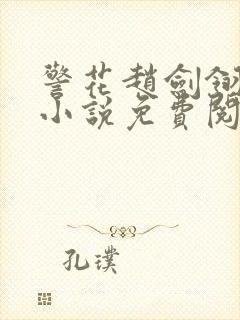 警花趙劍翎
小說免費閱
孔璞